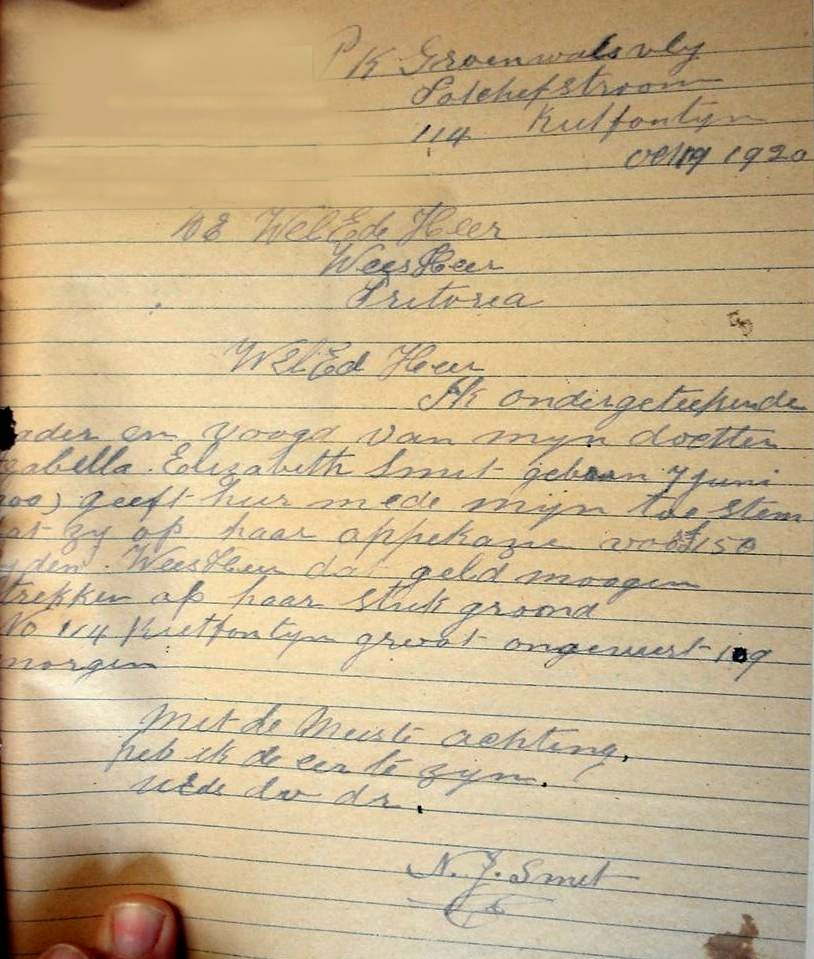 P K Groenwalsvly
Potchefstroom
114 Rietfontyn
Oct 19 1920
DE WelEde Heer
WeesHeer
Pritoria
WelEd Heer
Ik ondergeteekende
ader en Voogd van mijn dochter
abella Elizabeth Smit geboren 7 Juni
geeft hier mede mijn toe stem
at zy op haar appekazie voor £150
WeesHeer dat geld moogen
trekken op haar stuk groond
No 114 Rietfontyn groot ongeveer 109
morgen
Met de Meeste achting.
heb ik de eer te zyn.
UEds dw dr.
N. J. Smit